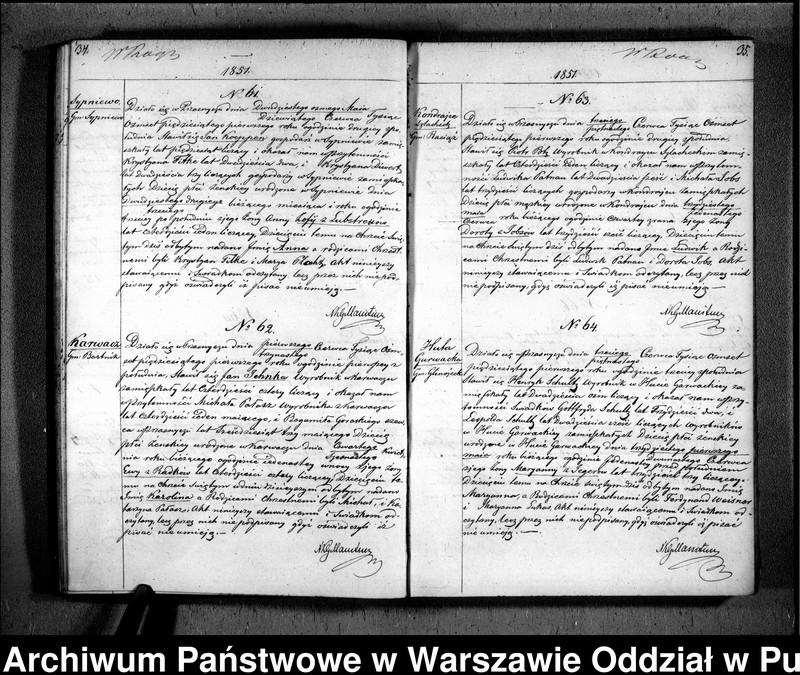 34.
1851.
No 61.
Sypniewo.
Gm Sypniewo
Działo się w Przasnyszu dnia Dwudziestego ósmego Maja
Dziewiątego Czerwca Tysiąc
Ośmset pięćdziesiątego pierwszego roku o godzinie drugiej po-
łudniu. Stawił się Jan gospodarz w Sypniewie zamie-
szkały lat pięćdziesiąt liczący i okazał nam w przytomności
Krystyana Filke lat dwadzieścia dwa, i Krystyana
lat dwadzieścia trzy liczących gospodarzy w Sypniewie zamieszka-
łych Dziecię płci żeńskiej urodzone w Sypniewie dnia
Dwudziestego drugiego bieżącego miesiąca i roku o godzinie
trzeciej po południu z jego żony Anny Zofij z
lat Czterdzieści Jeden liczącej. Dziecięciu temu na Chrzcie Świę-
tym dziś odbytym nadano Imię Anna a rodzicami Chrzest-
nemi byli Krystyan Filke i Marya Akt niniejszy
stawaiącemu i Świadkom odczytany lecz przez nich nie pod-
pisany gdyż oświadczyli iż pisać nieumieją.—
No 62.
Karwacz
Gm Bartnik
Działo się w Przasnyszu dnia pierwszego Czerwca Tysiąc Ośm-
trzynastego
set pięćdziesiątego pierwszego roku o godzinie pierwszej z
południa, Stawił się Jan Jehnka Wyrobnik w Karwaczu
zamieszkały lat Czterdzieści cztery liczący i okazał nam
w przytomności Michała Patasz Wyrobnika w Karwaczu
lat Czterdzieści Jeden mającego, i Bogumiła Górskiego
w Przasnyszu lat Sześćdziesiąt trzy mającego Dziecię
płci żeńskiej urodzone w Karwaczu dnia Czwartego Kwiet-
nia roku bieżącego o godzinie Jedenastej w nocy z jego żony
Ewy z Radków lat Czterdzieści cztery liczącej. Dziecięciu te-
mu na Chrzcie Świętym w dniu dzisiejszym odbytym nadano
Imię Karolina a Rodzicami Chrzestnemi byli Michał, i Ka-
tarzyna Patasz, Akt niniejszy stawaiącemu i Świadkom od-
czytany, lecz przez nich niepodpisany gdyż oświadczyli iż
pisać nieumieją.—
35.
1851.
No 63.
Kondrajec
Szlachecki
Gm Raciąż
Działo się w Przasnyszu dnia trzeciego Czerwca Tysiąc Ośmset
piętnastego
pięćdziesiątego pierwszego roku o godzinie drugiej z południa.
Stawił się Piotr Wyrobnik w Kondrajcu Szlacheckim zamie-
szkały, lat Czterdzieści Jeden liczący i okazał nam w przytom-
ności Ludwika Patnau lat Dwadzieścia pięć i Michała Sobs
lat trzydzieści liczących gospodarzy w Kondrajcu zamieszkałych
Dziecię płci męskiej urodzone w Kondrajcu dnia trzydziestego
maja
jedenastego
Czerwca roku bieżącego o godzinie Czwartej z rana z jego żony
Doroty z Sobsów lat trzydzieści sześć liczącej. Dziecięciu temu
na Chrzcie Świętym dziś odbytym nadano Imię Ludwik a Rodzi-
cami Chrzestnemi byli Ludwik Patnau i Dorota Sobs. Akt
niniejszy stawaiącemu i Świadkom odczytany, lecz przez nich
niepodpisany, gdyż oświadczyli iż pisać nieumieją.—
No 64
Huta
Gurwacka
Gm Glinojeck
Działo się w Przasnyszu dnia trzeciego Czerwca Tysiąc Ośmset
piętnastego
pięćdziesiątego pierwszego roku o godzinie trzeciej z południa
Stawił się Henryk Schultz Wyrobnik w Hucie Gurwackiej za-
mieszkały lat Dwadzieścia ośm liczący i okazał nam w przy-
tomności Świadków Gottfryda Schultz lat Trzydzieści dwa, i
Leopolda Schultz lat Dwadzieścia sześć liczących Wyrobników
w Hucie Gurwackiej zamieszkałych Dziecię płci żeńskiej
urodzone w Hucie Gurwackiej dnia trzydziestego pierwszego
maja roku bieżącego o godzinie
Dwunastego Czerwca
z jego żony Maryanny z lat trzydzieści trzy liczącej.
Dziecięciu temu na Chrzcie Świętym dziś odbytym nadano Imię
Maryanna, a Rodzicami Chrzestnemi byli Ferdynand Weisner
i Maryanna Lukas, Akt niniejszy stawaiącemu i Świadkom od-
czytany, lecz przez nich niepodpisany, gdyż oświadczyli iż pisać
nie umieją.—
Archiwum Państwowe w Warszawie Oddział w Pu